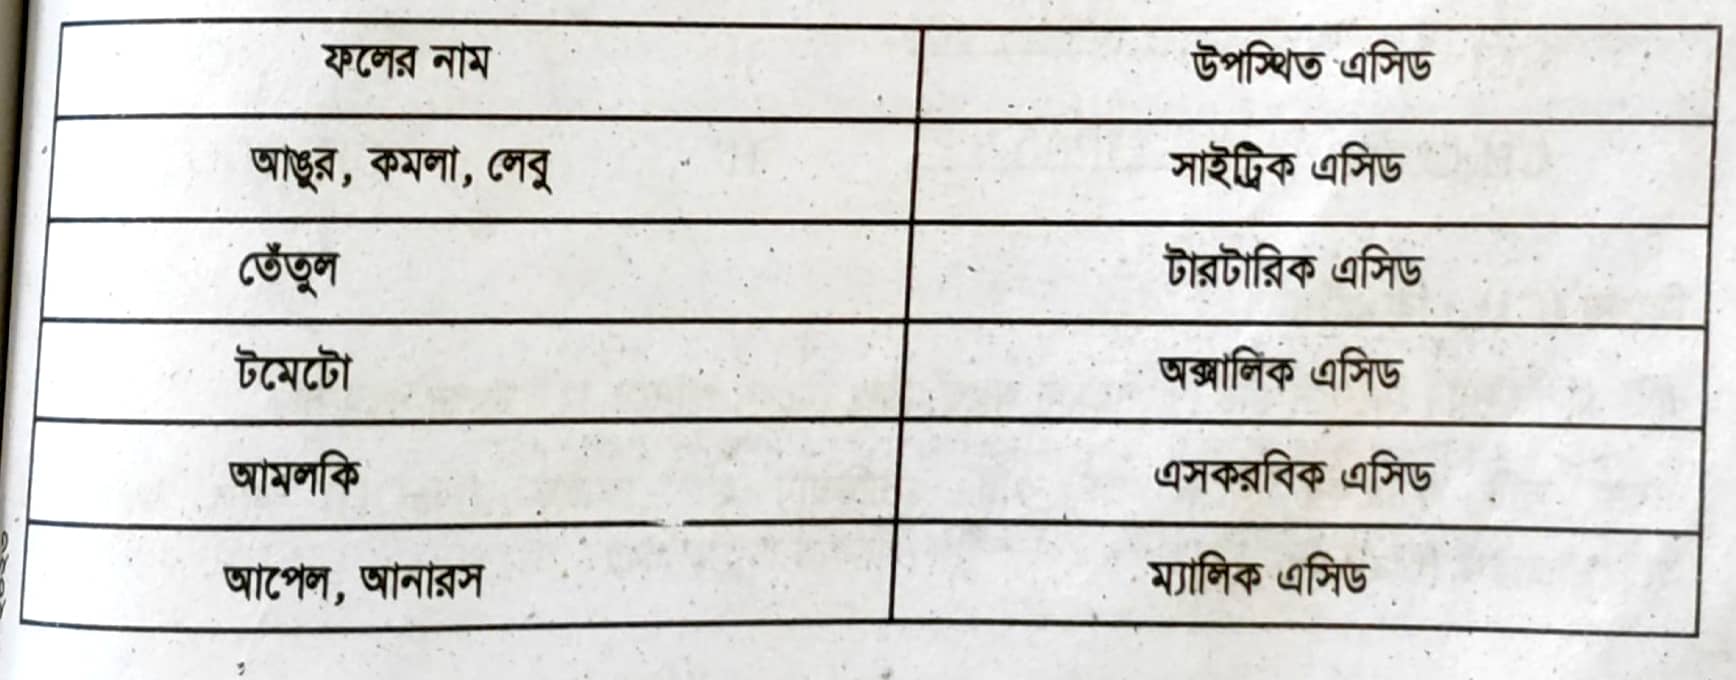 ফলের নাম উপস্থিত এসিড
আঙুর, কমলা, লেবু সাইট্রিক এসিড
তেঁতুল টারটারিক এসিড
টমেটো অক্সালিক এসিড
আমলকি এসকরবিক এসিড
আপেল, আনারস ম্যালিক এসিড